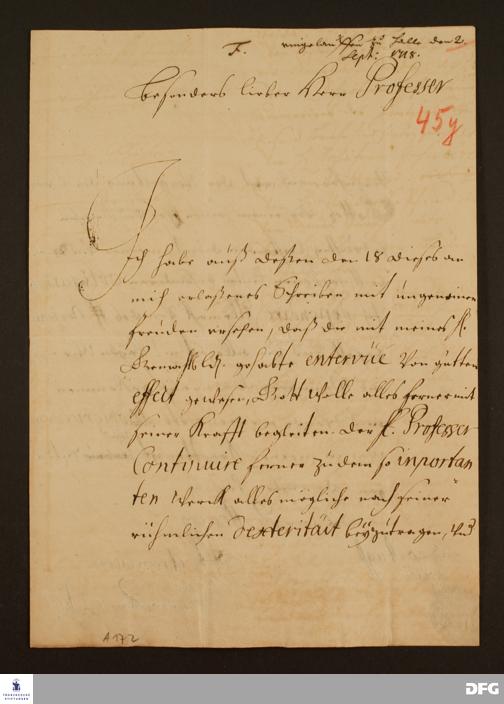 F. eingelauffen zu Halle den 2.
Sept: 1718.
besonders lieber Herr Professer
45g
Ich habe auß deßen den 18 dieses an
mich erlaßenes Schreiben mit ungemeinen
freuden ersehen, daß die mit meines H.
gehabte entervüe von gutten
effect gewesen, Gott wolle alles ferner mit
seiner Krafft begleiten. der H. Professer
Continuire ferner zu dem so inportan
ten Werck alles mögliche nach seiner
rühmlichen dexteritäit beyzutragen, und
A 172
FRANCKESCHE
STIFTUNGEN
DFG